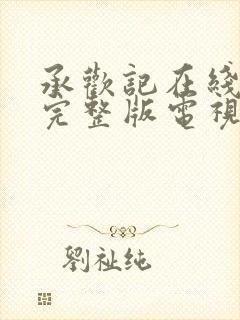 承歡記在綫
完整版電視
劉祉纯